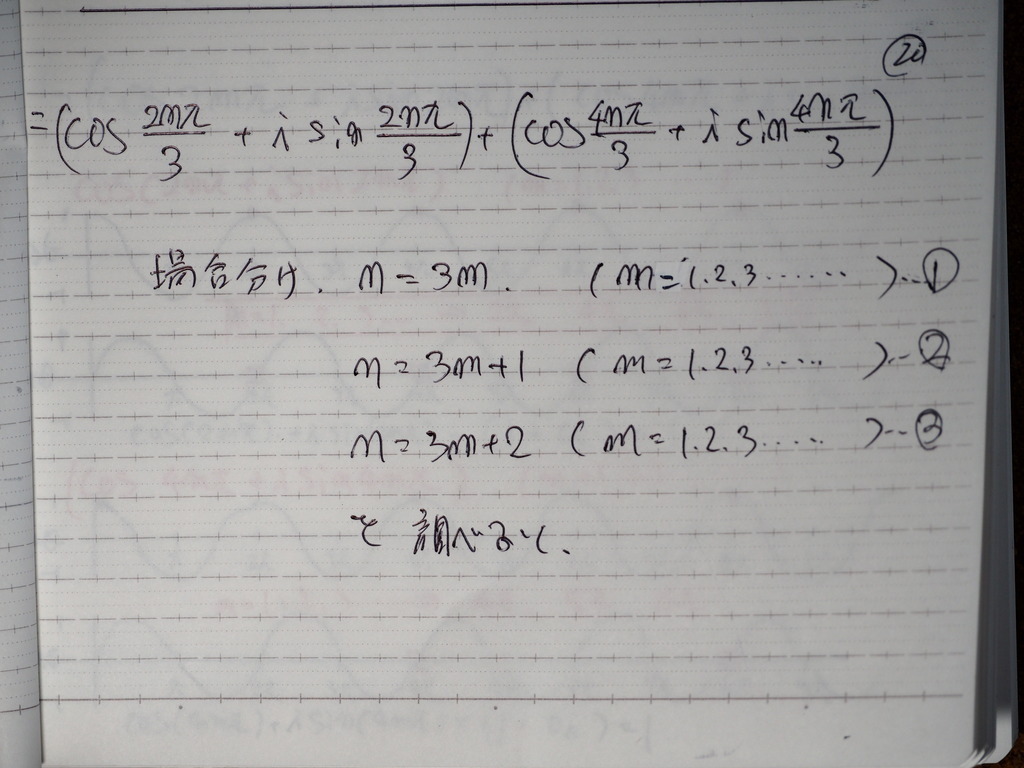 20
= (cos 2nπ/3 + i sin 2nπ/3) + (cos 4nπ/3 + i sin 4nπ/3)
場合分け. n = 3m. (m = 1.2.3 ......) ... ①
n = 3m+1 (m = 1.2.3 .....) ... ②
n = 3m+2 (m = 1.2.3 .....) ... ③
で 調べると.